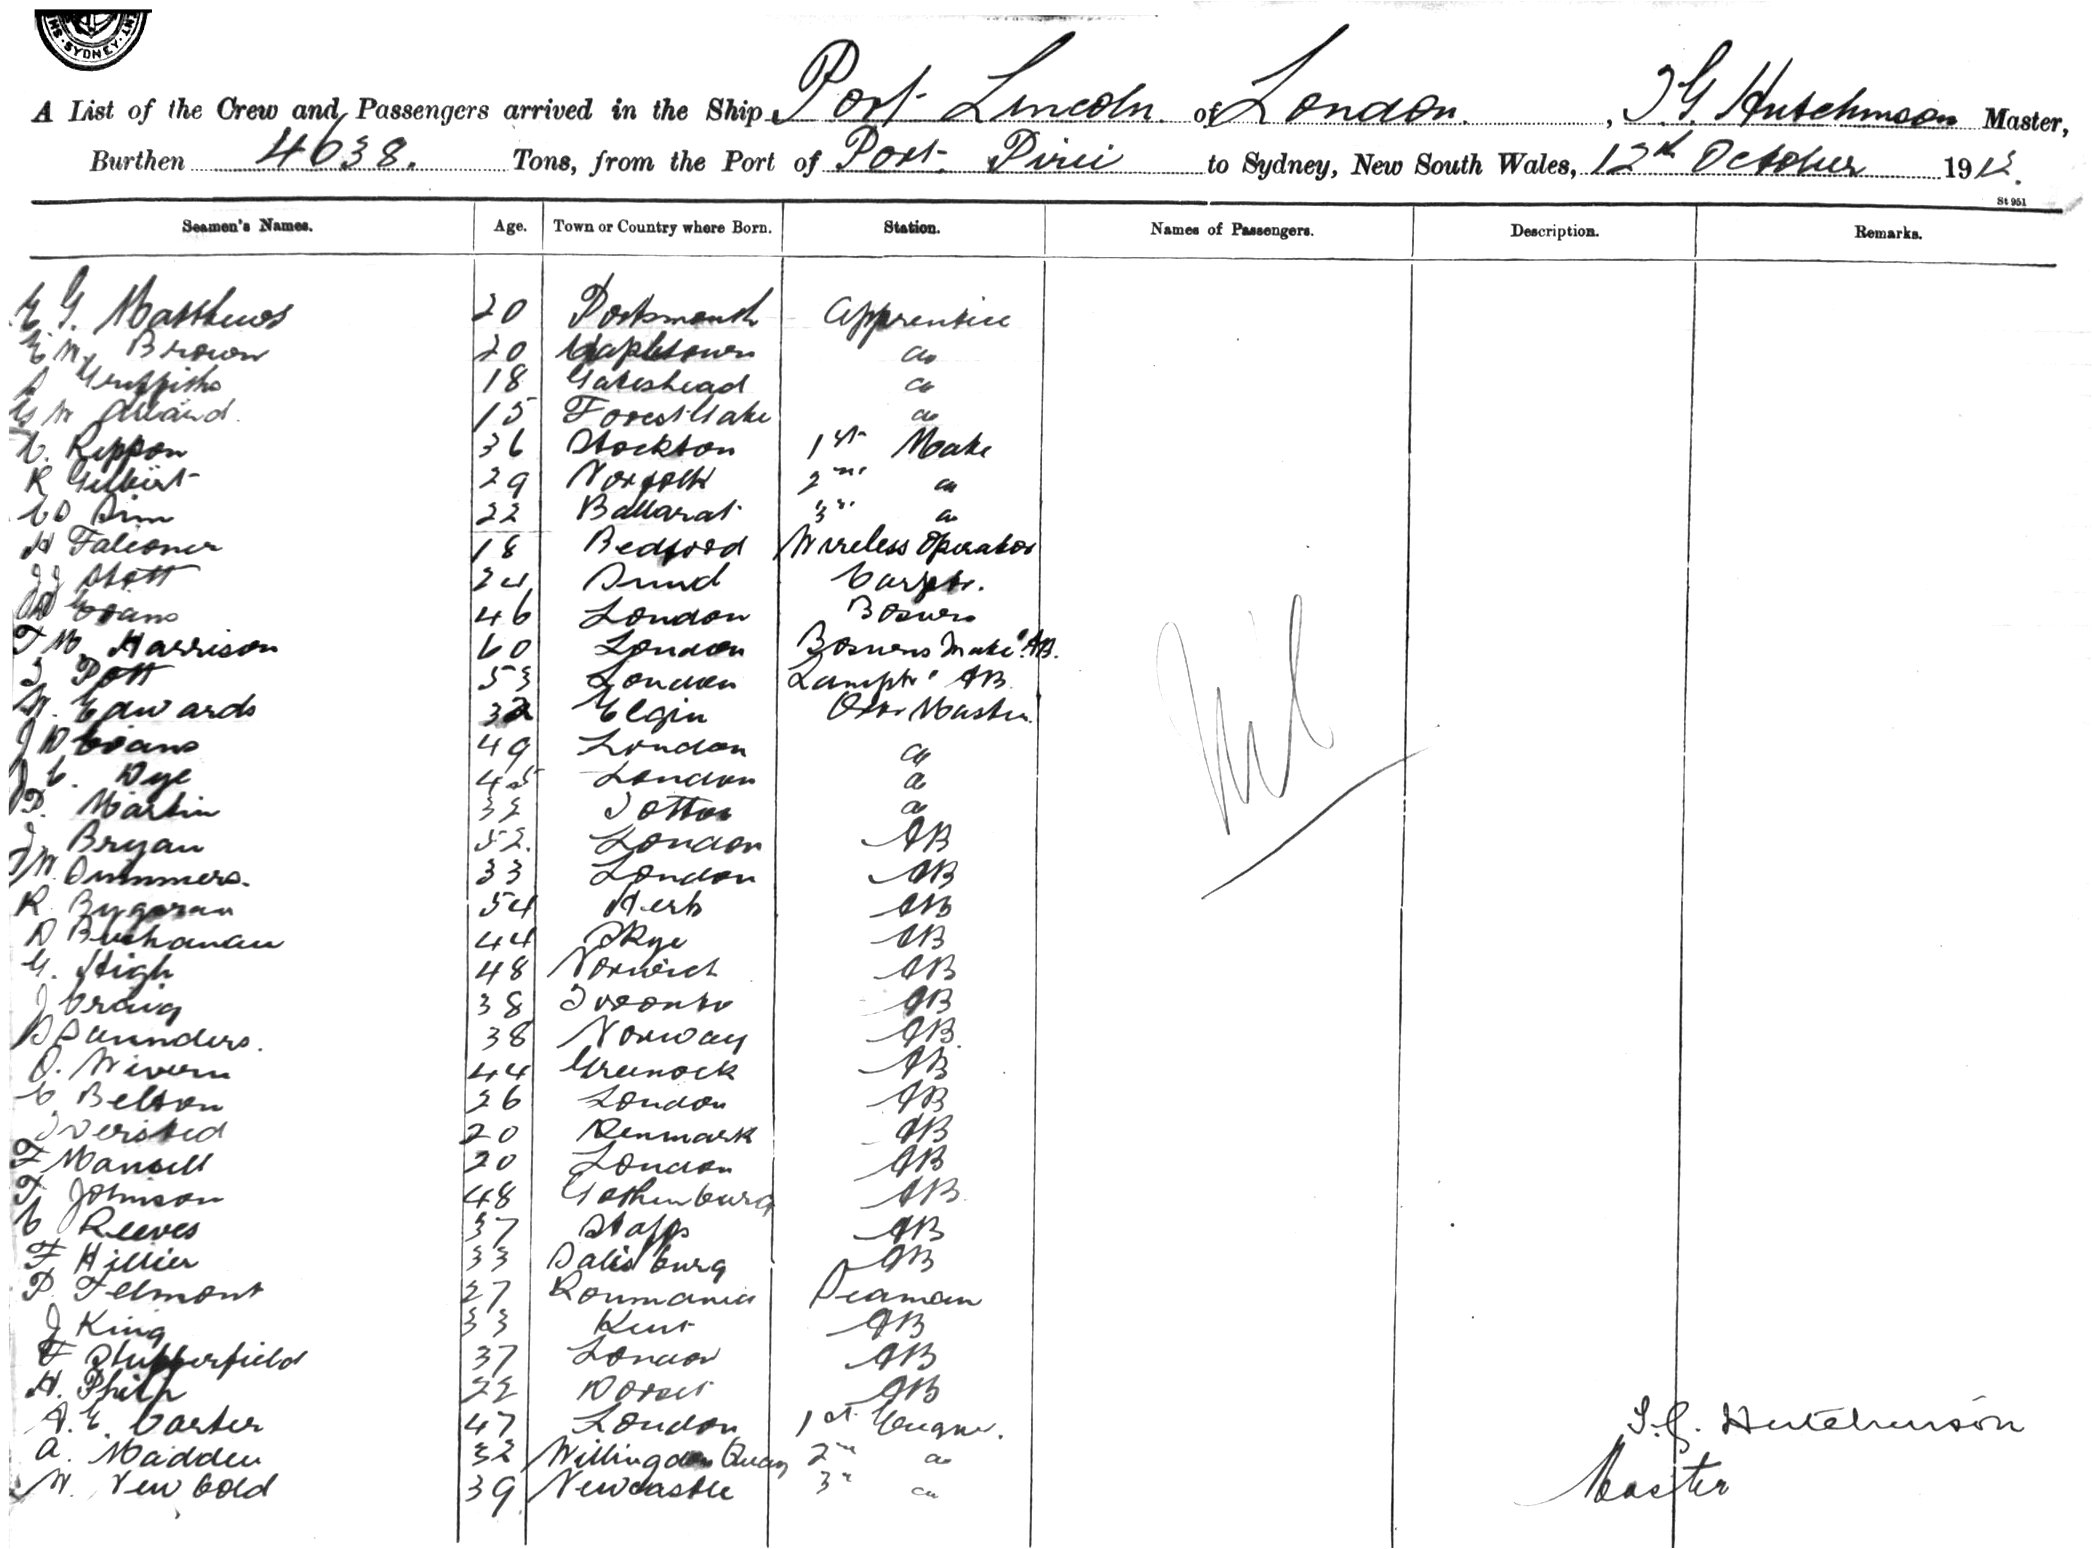 SYDNEY
A List of the Crew and Passengers arrived in the Ship Port Lincoln of London, T G Hutchinson Master,
Burthen 4638. Tons, from the Port of Port Pirie to Sydney, New South Wales, 12th October 1912.
St 951
Seamen's Names. Age. Town or Country where Born. Station. Names of Passengers. Description. Remarks.
E G. Matthews 20 Portsmouth Apprentice
E W Brown 20 do
Griffiths 18 Gateshead do
G W 15 Forest Gate do
C. Reppon 36 Stockton 1st Mate
R Gilbert 29 Norfolk 2nd do
C D Sim 22 Ballarat 3rd do
H Falconer 18 Bedford Wireless Operator
J J Stott 24 Sund Carptr.
D Evans 46 London Bosun
F W Harrison 60 London Bosuns Mate & AB.
T Pott 53 London Lamptr & AB
W. Edwards 32 Elgin Qtr Master
J D Evans 49 London do
J C. Dye 45 London do
P. Martin 32 Totton do
J Bryan 52. London AB
J W. Summers. 33 London AB
R. Bygorau 54 Herts AB
D Buchanan 44 Skye AB
G. High 48 Norwich AB
J Craig 38 Toronto AB
D Saunders. 38 Norway AB
O. Wivern 44 Greenock AB
C Belton 26 London AB
20 Denmark AB
F Mansell 20 London AB
F Johnson 48 Gothenburg AB
C Reeves 37 Staffs AB
F Hillier 33 Salisburg AB
P. Felmont 27 Roumania Seaman
J King 33 Kent AB
F Stupperfield 37 London AB
H. Philp 22 Dorset AB
A. E. Carter 47 London 1st Engnr.
A. Madden 32 Willingdon Quay 2nd do
W. Newbold 39 Newcastle 3rd do
Nil
T. G. Hutchinson
Master